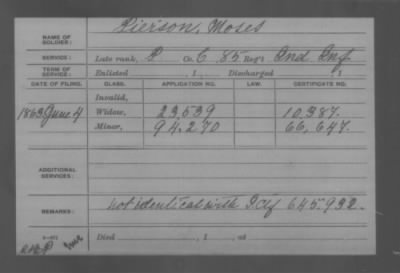 NAME OF SOLDIER: Pierson, Moses
SERVICE: Late rank, P Co. C 85 Reg't Ind Inf
TERM OF SERVICE: Enlisted , 1 , Discharged , 1
DATE OF FILING. CLASS. APPLICATION NO. LAW. CERTIFICATE NO.
Invalid,
1863 June 4 Widow, 23,539 10,387.
Minor, 94.270 66,647.
ADDITIONAL SERVICES:
REMARKS: not identical with 645.932.
Died , 1 , at